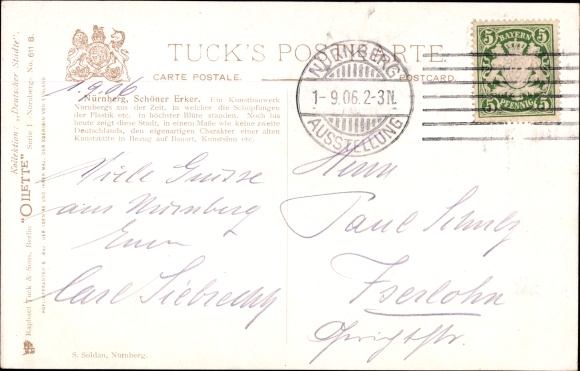 TUCK'S POSTKARTE.
CARTE POSTALE.
POSTCARD.
1.9.06
Nürnberg, Schöner Erker. Ein Kunstinowerk
Nürnbergs aus der Zeit, in welcher die Schöpfungen
der Plastik etc. in höchster Blüte standen. Noch bis
heute zeigt diese Stadt, in einem Maße wie keine zweite
Deutschlands, den eigenartigen Charakter einer alten
Kunststätte in Bezug auf Bauart, Kunstsinn etc.
Viele Grüsse
aus Nürnberg
Euer
Carl Siebrecht
S. Soldan, Nürnberg.
Kollektion: „Deutscher Städte". Serie I. Nürnberg. No. 611 B.
Raphael Tuck & Sons, Berlin "OILETTE"
NÜRNBERG
1-9.06.2-3N.
AUSSTELLUNG
5 BAYERN 5
5 PFENNIG 5
Herrn
Paul Schulz
Iserlohn